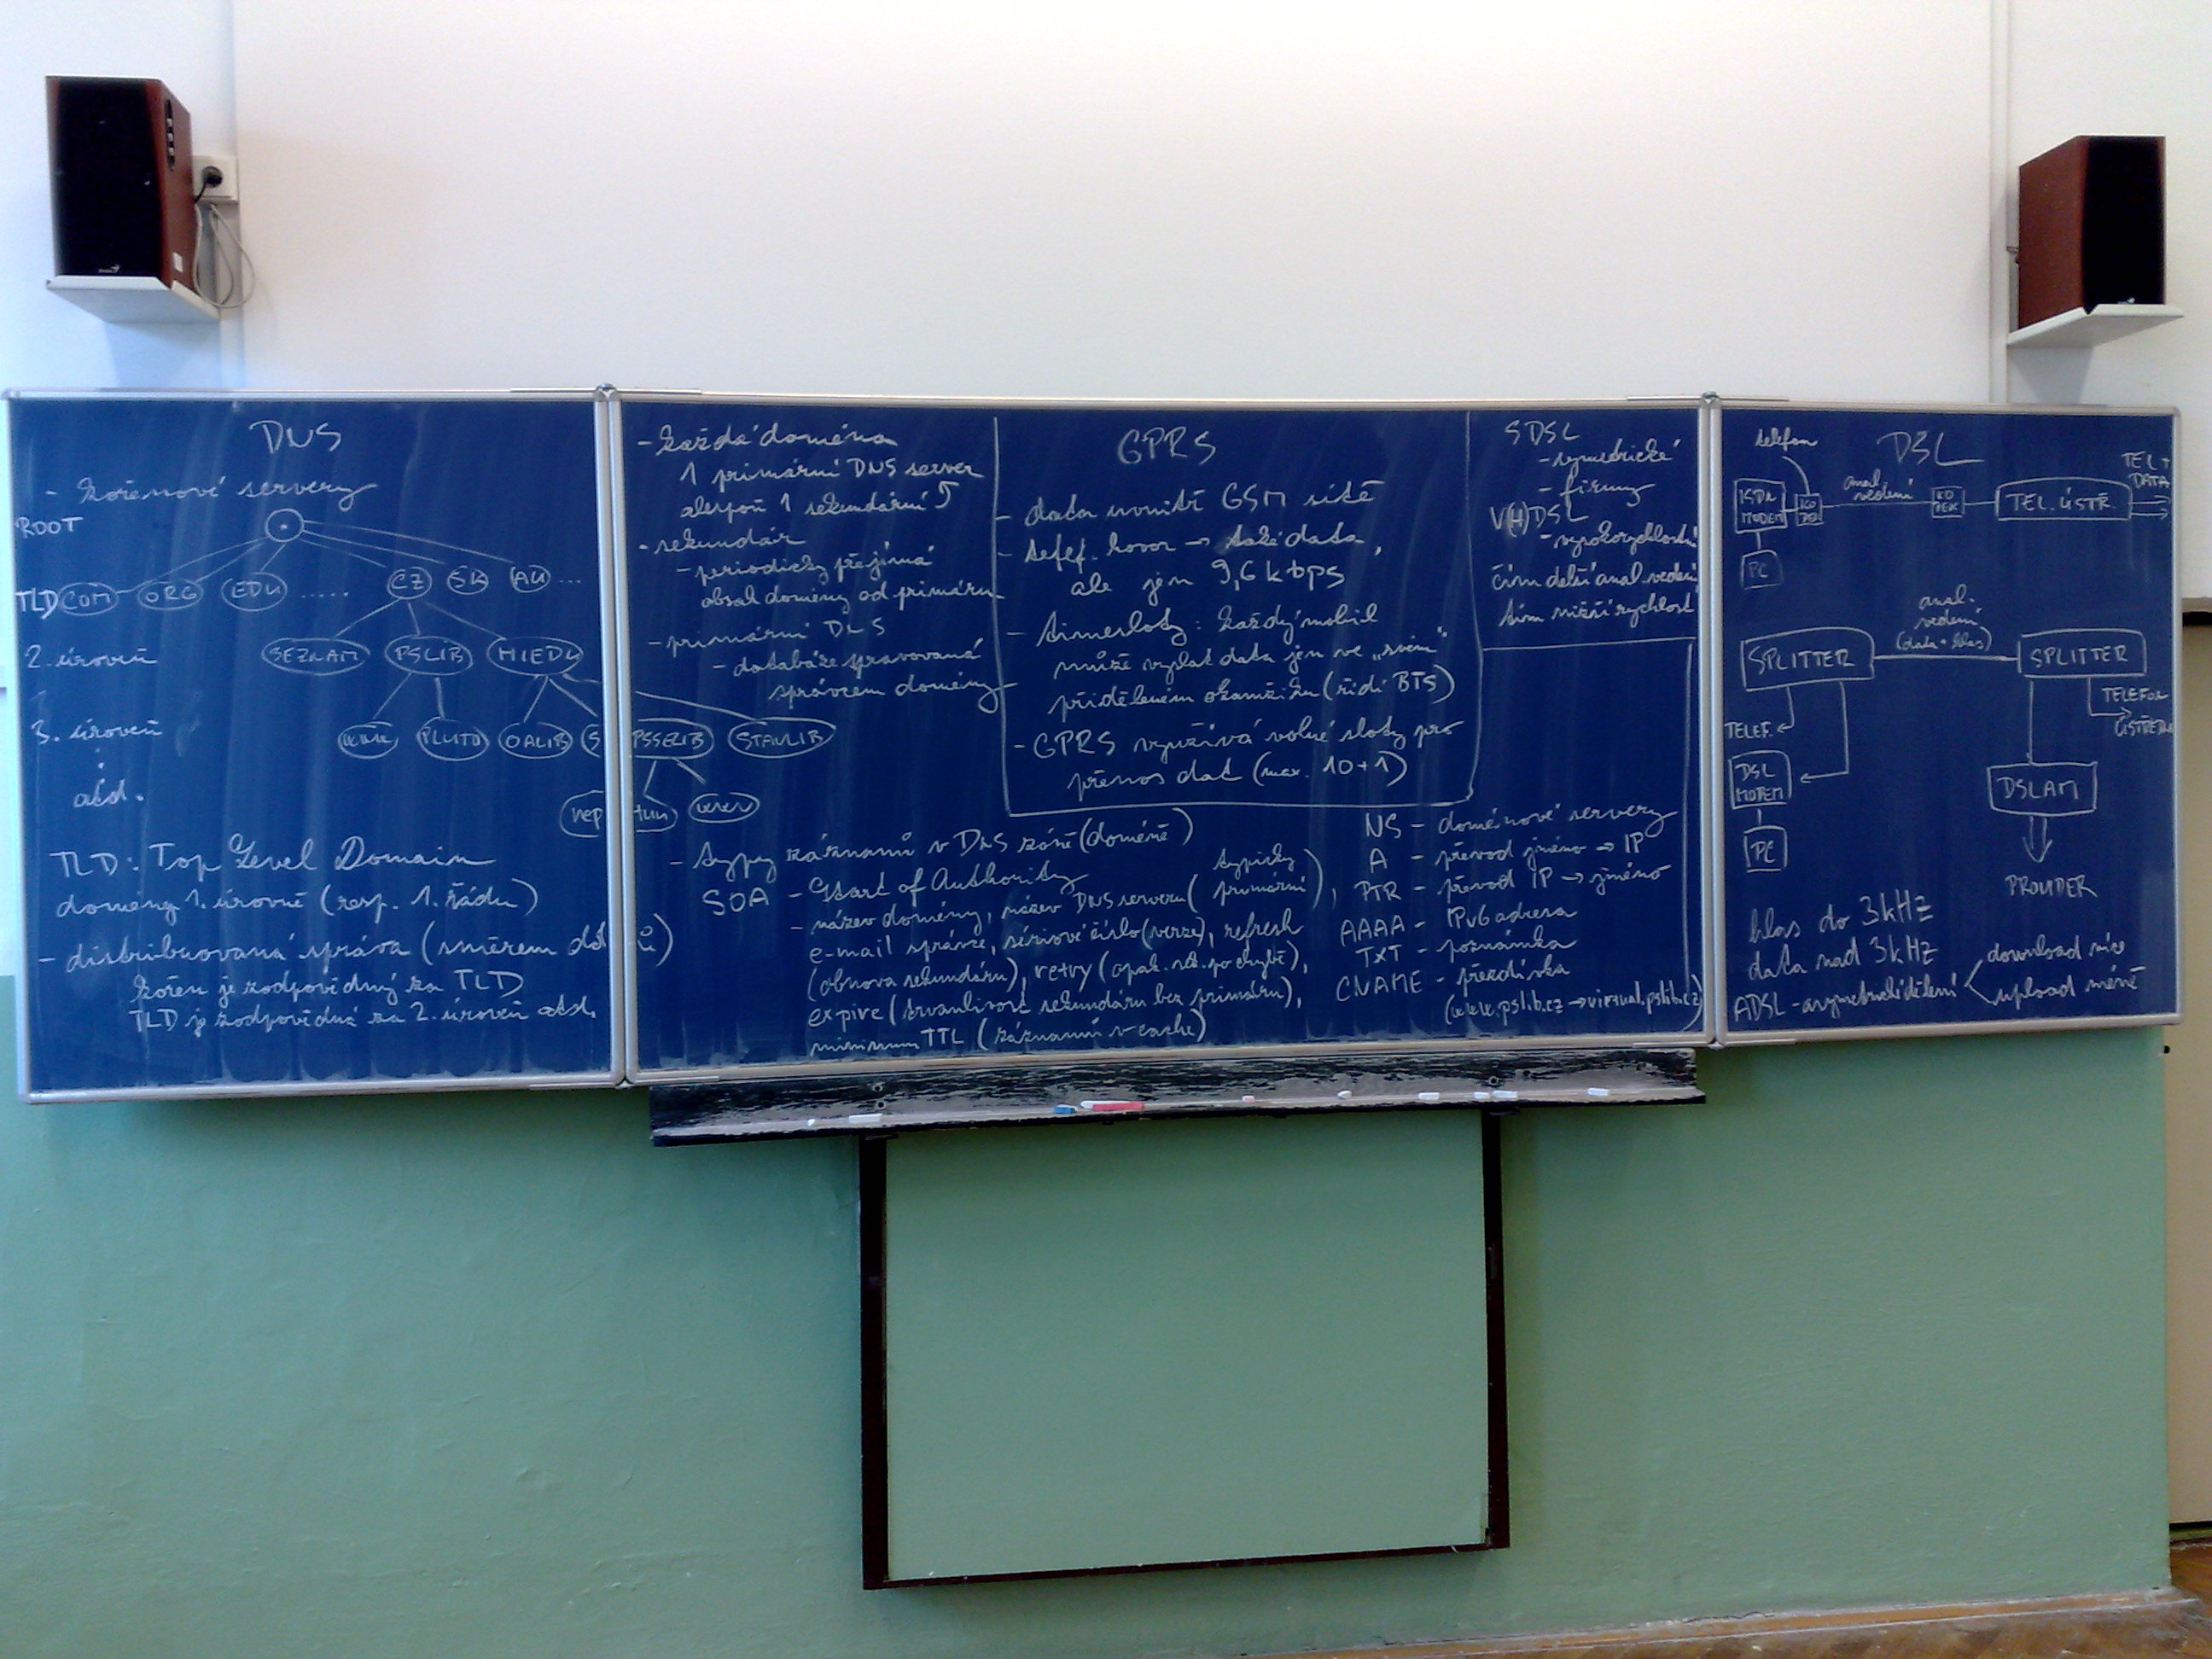 DNS
- kořenové servery
ROOT
TLD COM ORG EDU ..... CZ SK AU ...
2. úroveň SEZNAM PSLIB HIEDU
3. úroveň PLUTO OALIB SPSSELIB STAVLIB
atd. neptun www
TLD: Top Level Domain
domény 1. úrovně (resp. 1. řádu)
- distribuovaná správa (směrem dolů)
kořen je zodpovědný za TLD
TLD je zodpovědná za 2. úroveň atd.
- každá doména
1 primární DNS server
alespoň 1 sekundární
- sekundár
- periodicky přejímá
obsah domény od primáru
- primární DNS
- databáze spravovaná
správcem domény
GPRS
- data uvnitř GSM sítě
- telef. hovor → také data,
ale jen 9,6 kbps
- timesloty: každý mobil
může vyslat data jen ve „svém"
přiděleném okamžiku (řídí BTS)
- GPRS využívá volné sloty pro
přenos dat (max. 10+1)
SDSL
- symetrické
- firmy
V(H)DSL
- vysokorychlostní
čím delší anal. vedení
tím nižší rychlost
- typy záznamů v DNS zóně (doméně)
SOA - Start of Authority
- název domény, název DNS serveru (typicky primární),
e-mail správce, sériové číslo (verze), refresh
(obnova sekundáru), retry (opak. po chybě),
expire (trvanlivost sekundáru bez primáru),
minimum TTL (záznamů v cache)
NS - doménové servery
A - převod jméno → IP
PTR - převod IP → jméno
AAAA - IPv6 adresa
TXT - poznámka
CNAME - přezdívka
(www.pslib.cz → virtual.pslib.cz)
DSL
telefon
ISDN
MODEM
KO
DEK
anal.
vedení
KO
DEK
TEL. ÚSTŘ.
TEL +
DATA
PC
SPLITTER
anal.
vedení
(data + hlas)
SPLITTER
TELEF.
TELEFON
ÚSTŘEDNA
DSL
MODEM
DSLAM
PC
PROVIDER
hlas do 3kHz
data nad 3kHz
ADSL - asymetrické dělení
download více
upload méně